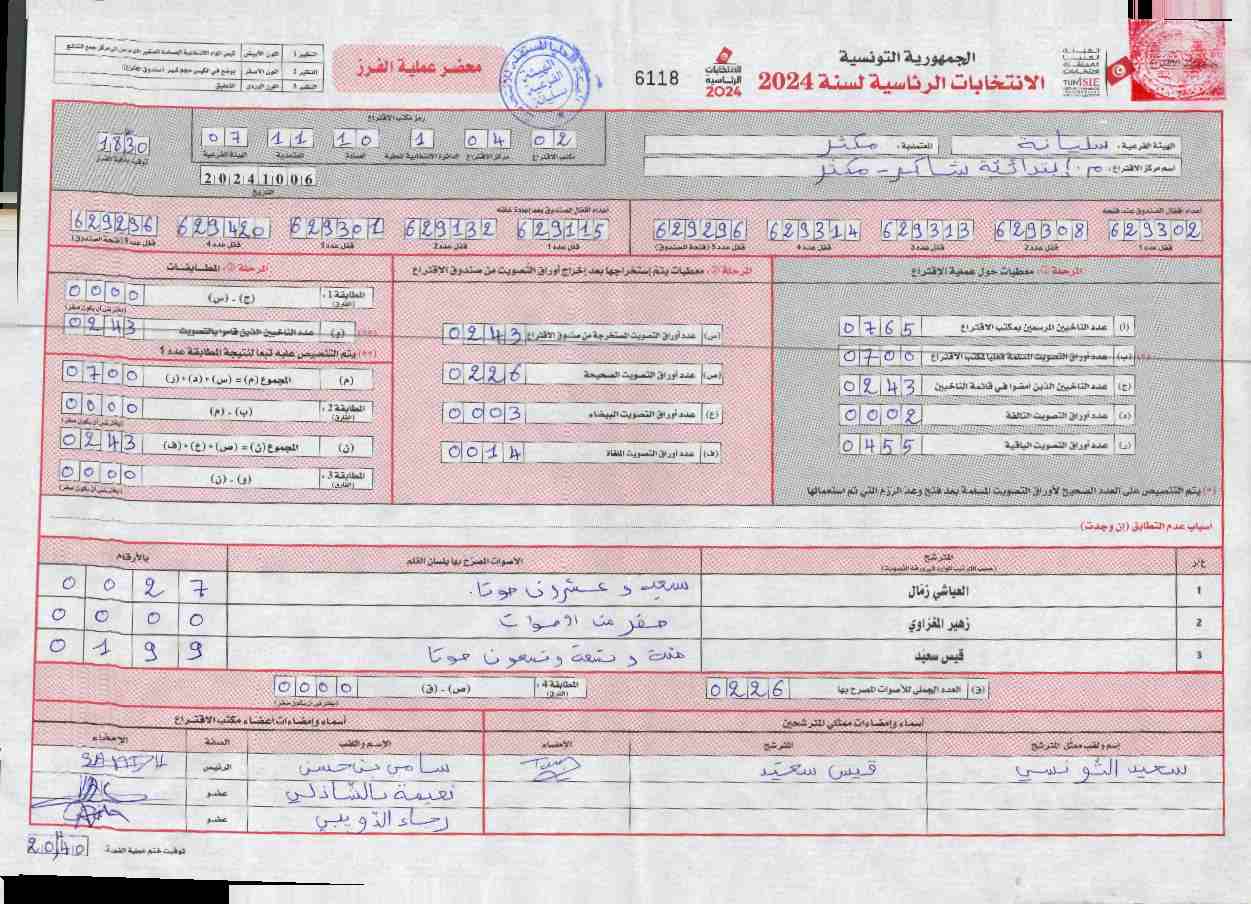 الجمهورية التونسية
الانتخابات الرئاسية لسنة 2024
6118
الانتخابات الرئاسية 2024
محضر عملية الفرز
النظير 1 اللون الأبيض
النظير 2 اللون الأصفر
النظير 3 اللون الوردي التعليق
الهيئة الفرعية: سليانة المعتمدية: مكثر
اسم مركز الاقتراع: م. إبتدائية شاكر - مكثر
رمز مكتب الاقتراع
02 04 1 10 11 07
مكتب الاقتراع مركز الاقتراع الدائرة الانتخابية المحلية العمادة المعتمدية الهيئة الفرعية
20241006
التاريخ
1830
توقيت بداية الفرز
أعداد أقفال الصندوق عند فتحه
629302 629308 629313 629314 629296
قفل عدد 1 قفل عدد 2 قفل عدد 3 قفل عدد 4 قفل عدد 5 (فتحة الصندوق)
أعداد أقفال الصندوق بعد إعادة غلقه
629115 629132 629301 629420 629296
قفل عدد 1 قفل عدد 2 قفل عدد 3 قفل عدد 4 قفل عدد 5 (فتحة الصندوق)
المرحلة 1: معطيات حول عملية الاقتراع
(أ) عدد الناخبين المرسمين بمكتب الاقتراع 0765
(ب) عدد أوراق التصويت المسلمة فعليا لمكتب الاقتراع 0700
(ج) عدد الناخبين الذين أمضوا في قائمة الناخبين 0243
(د) عدد أوراق التصويت التالفة 0002
(ر) عدد أوراق التصويت الباقية 0455
(*) يتم التنصيص على العدد الصحيح لأوراق التصويت المسلمة بعد فتح وعد الرزم التي تم استعمالها
المرحلة 2: معطيات يتم إستخراجها بعد إخراج أوراق التصويت من صندوق الاقتراع
(س) عدد أوراق التصويت المستخرجة من صندوق الاقتراع 0243
(ص) عدد أوراق التصويت الصحيحة 0226
(ع) عدد أوراق التصويت البيضاء 0003
(ف) عدد أوراق التصويت الملغاة 0014
المرحلة 3: المطابقات
المطابقة 1: (الفارق) (ج) - (س) 0000
(يفترض أن يكون صفر)
(**) (و) عدد الناخبين الذين قاموا بالتصويت 0243
(**) يتم التنصيص عليه تبعا لنتيجة المطابقة عدد 1
(م) المجموع (م) = (س) + (د) + (ر) 0700
المطابقة 2: (الفارق) (ب) - (م) 0000
(يفترض أن يكون صفر)
(ن) المجموع (ن) = (ص) + (ع) + (ف) 0243
المطابقة 3: (الفارق) (و) - (ن) 0000
(يفترض أن يكون صفر)
أسباب عدم التطابق (إن وجدت)
ع/د المترشح الأصوات المصرح بها بلسان القلم بالأرقام
(حسب الترتيب الوارد في ورقة التصويت)
1 العياشي زمّال سبعة و عشرون صوتا. 0027
2 زهير المغزاوي صفر من الأصوات 0000
3 قيس سعيّد مئة و تسعة و تسعون صوتا 0199
(ق) العدد الجملي للأصوات المصرح بها 0226
المطابقة 4: (الفارق) (ص) - (ق) 0000
(يفترض أن يكون صفر)
أسماء وإمضاءات ممثلي المترشحين
إسم ولقب ممثل المترشح المترشح الأمضاء
سعيد التونسي قيس سعيّد
أسماء وإمضاءات أعضاء مكتب الاقتراع
الإسم واللقب الصفة الإمضاء
سامي بن حسن الرئيس SAMI H
نعيمة بالشاذلي عضو
رجاء الذويبي عضو
توقيت ختم عملية الفرز: 2040